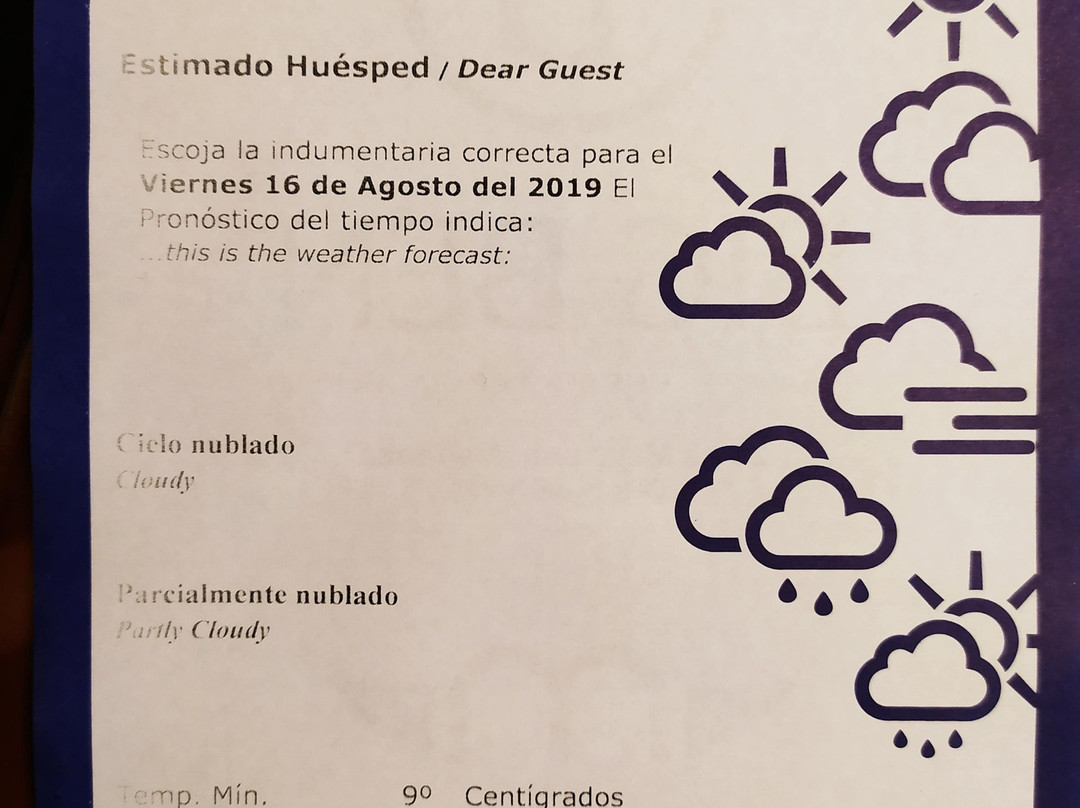 Estimado Huésped / Dear Guest
Escoja la indumentaria correcta para el
Viernes 16 de Agosto del 2019 El
Pronóstico del tiempo indica:
...this is the weather forecast:
Cielo nublado
Cloudy
Parcialmente nublado
Partly Cloudy
Temp. Mín. 9º Centígrados